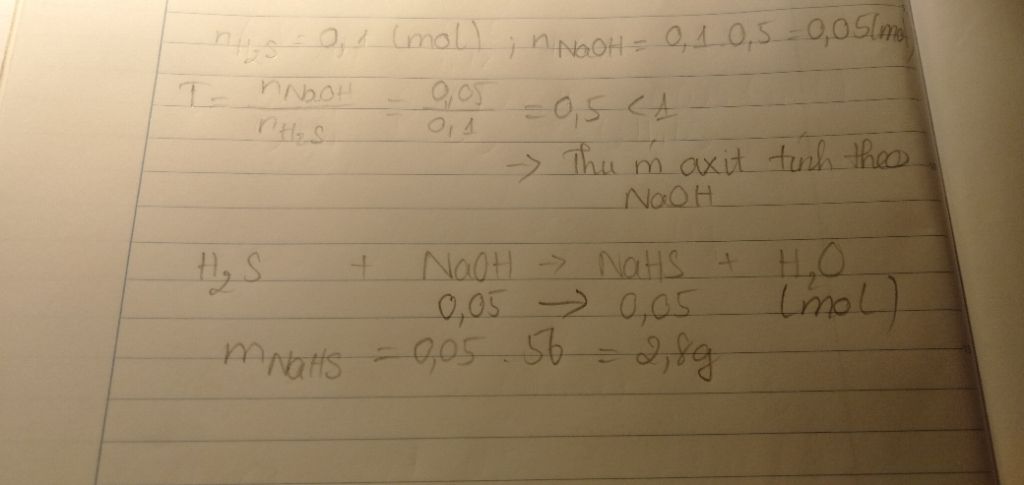 nH₂S = 0,1 (mol) ; nNaOH = 0,1.0,5 = 0,05(mol)
T = nNaOH / nH₂S = 0,05 / 0,1 = 0,5 < 1
→ Thu m axit tính theo
NaOH
H₂S + NaOH → NaHS + H₂O
0,05 → 0,05 (mol)
mNaHS = 0,05 . 56 = 2,8g